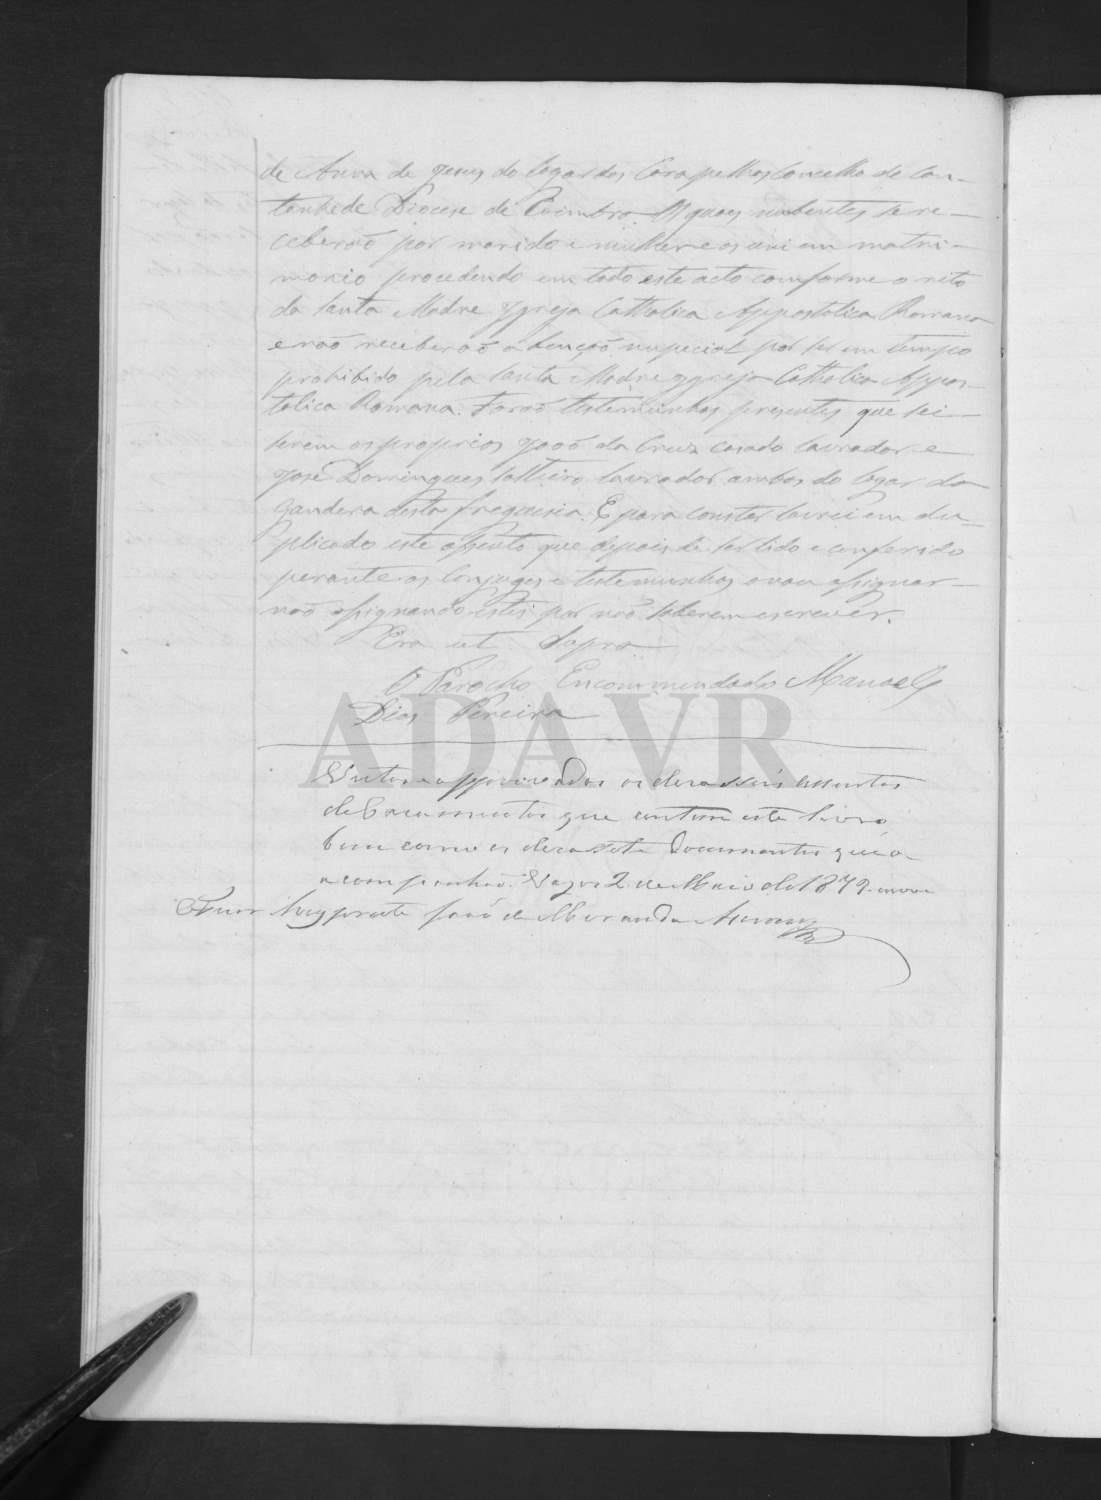 de Anna de Jesus do logar dos Corapelhos Concelho de Can-
tanhede Diocese de Coimbra. Os quaes nubentes se re-
ceberaõ por marido e mulher e os uni em matri-
monio procedendo em todo este acto comforme o rito
da Santa Madre Ygreja Catholica Appostolica Romana
e naõ receberaõ a bençaõ nupecial por ser em tempo
prohibido pela Santa Madre Ygreja Catholica Appos-
tolica Romana. Foraõ testemunhas presentes que sei
serem os proprios Joaõ da Cruz casado lavrador e
José Domingues solteiro lavrador ambos do logar da
Gandera desta freguesia. E para constar lavrei em du-
plicado este assento que depois de ser lido e conferido
perante os Conjuges e testemunhas o vou assignar
naõ assignando estes por naõ saberem escrever.
Era ut Supra
O Parocho Encommendado Manoel
Dias Pereira
ADAVR
Vistos e approvados os deraseis assentos
de Cazamentos que contem este livro
bem como os derasete Documentos que o
acompanhaõ. Vagos 2 de Maio de 1879.
Joaõ de Miranda